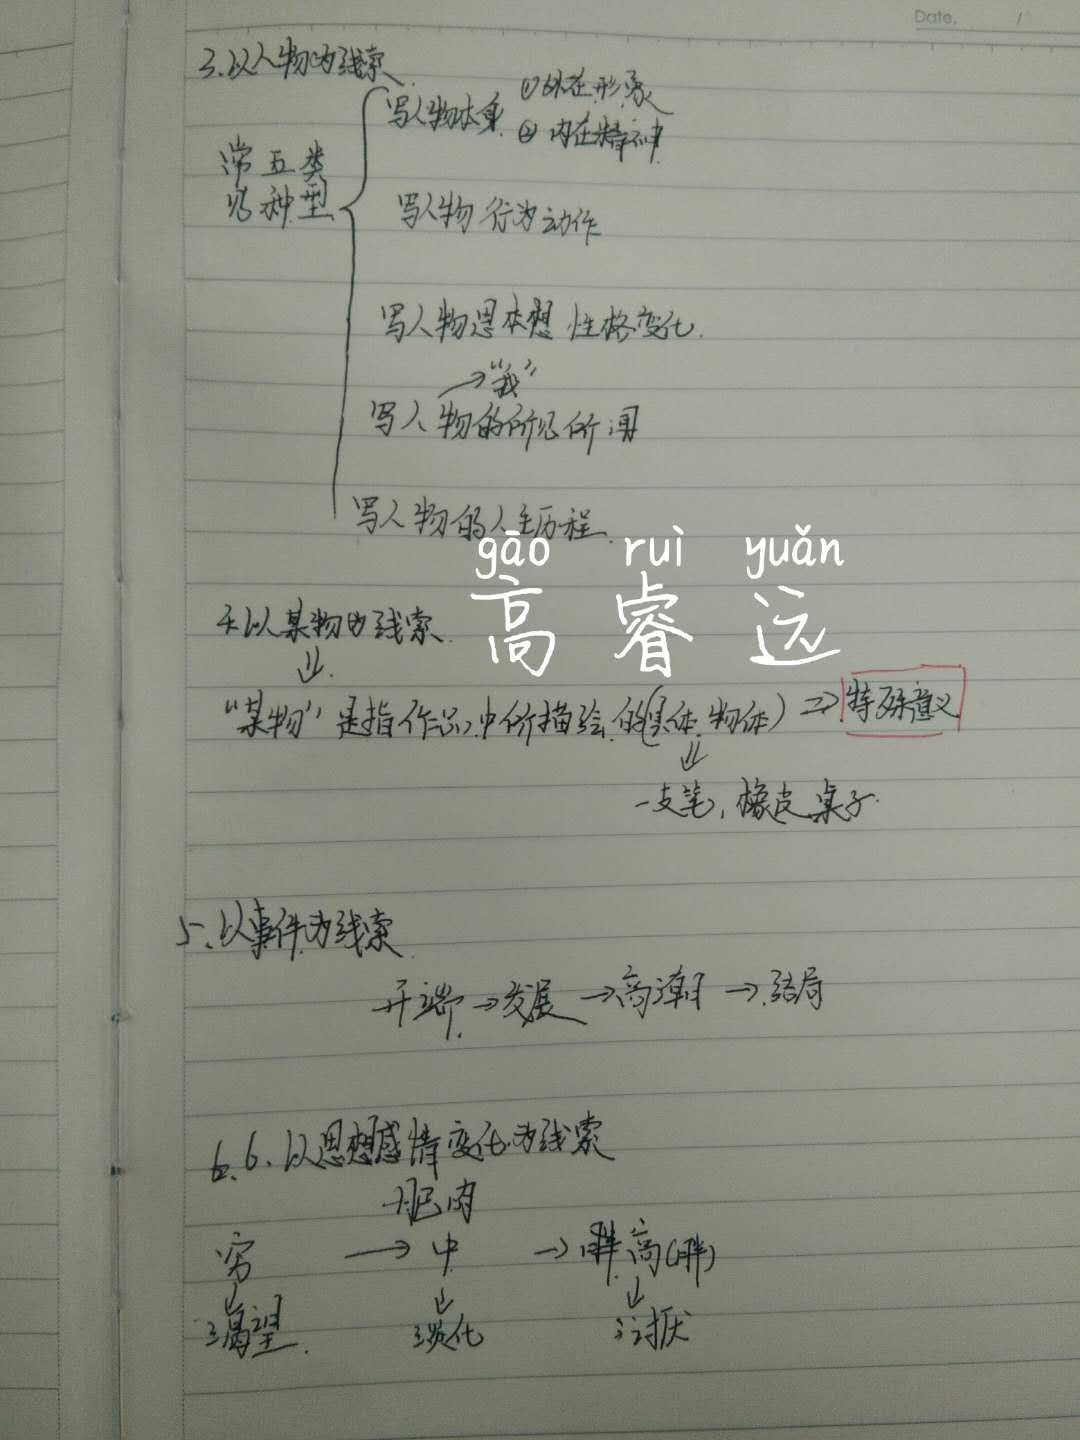 Date. /
3.以人物为线索
写人物本身 ①外在形象
②内在精神
常五类
见种型
写人物行为动作
写人物思本想 性格变化.
→“我”
写人物的所见所闻
写人物的人生历程.
gāo ruì yuǎn
高睿远
4.以某物为线索.
⇓
“某物”是指作品中所描绘的(具体物体)⇒特殊意义
⇓
一支笔,橡皮 桌子.
5.以事件为线索
开端→发展→高潮→结局
6.6.以思想感情变化为线索
肥肉
穷→中→胖高(胖)
↓ ↓ ↓
渴望. 淡化 讨厌